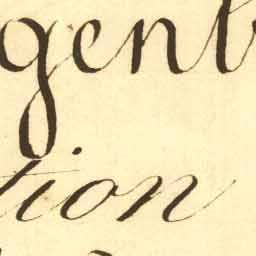 gent
tion